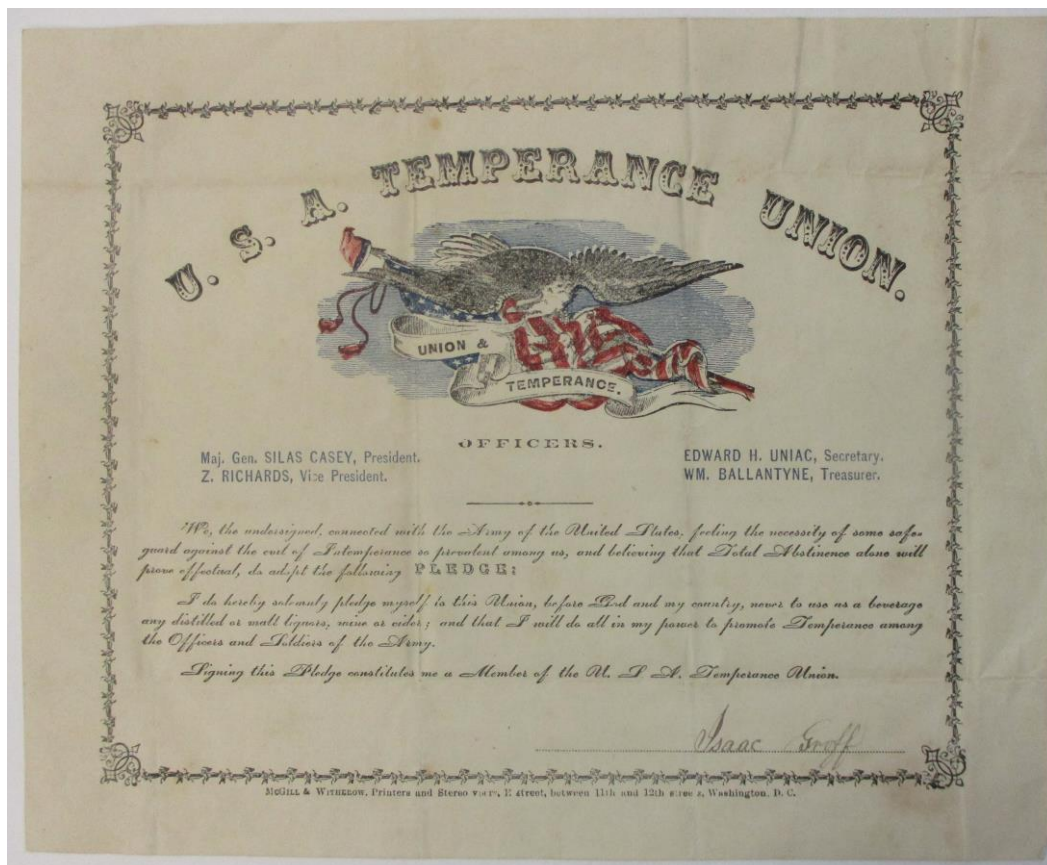 U. S. A. TEMPERANCE UNION.
UNION &
TEMPERANCE.
OFFICERS.
Maj. Gen. SILAS CASEY, President.
Z. RICHARDS, Vice President.
EDWARD H. UNIAC, Secretary.
WM. BALLANTYNE, Treasurer.
We, the undersigned, connected with the Army of the United States, feeling the necessity of some safe-
guard against the evil of Intemperance so prevalent among us, and believing that Total Abstinence alone will
prove effectual, do adopt the following PLEDGE:
I do hereby solemnly pledge myself to this Union, before God and my country, never to use as a beverage
any distilled or malt liquors, wine or cider; and that I will do all in my power to promote Temperance among
the Officers and Soldiers of the Army.
Signing this Pledge constitutes me a Member of the U. S. A. Temperance Union.
Isaac Groff
McGILL & WITHEROW, Printers and Stereo E street, between 11th and 12th Washington, D. C.